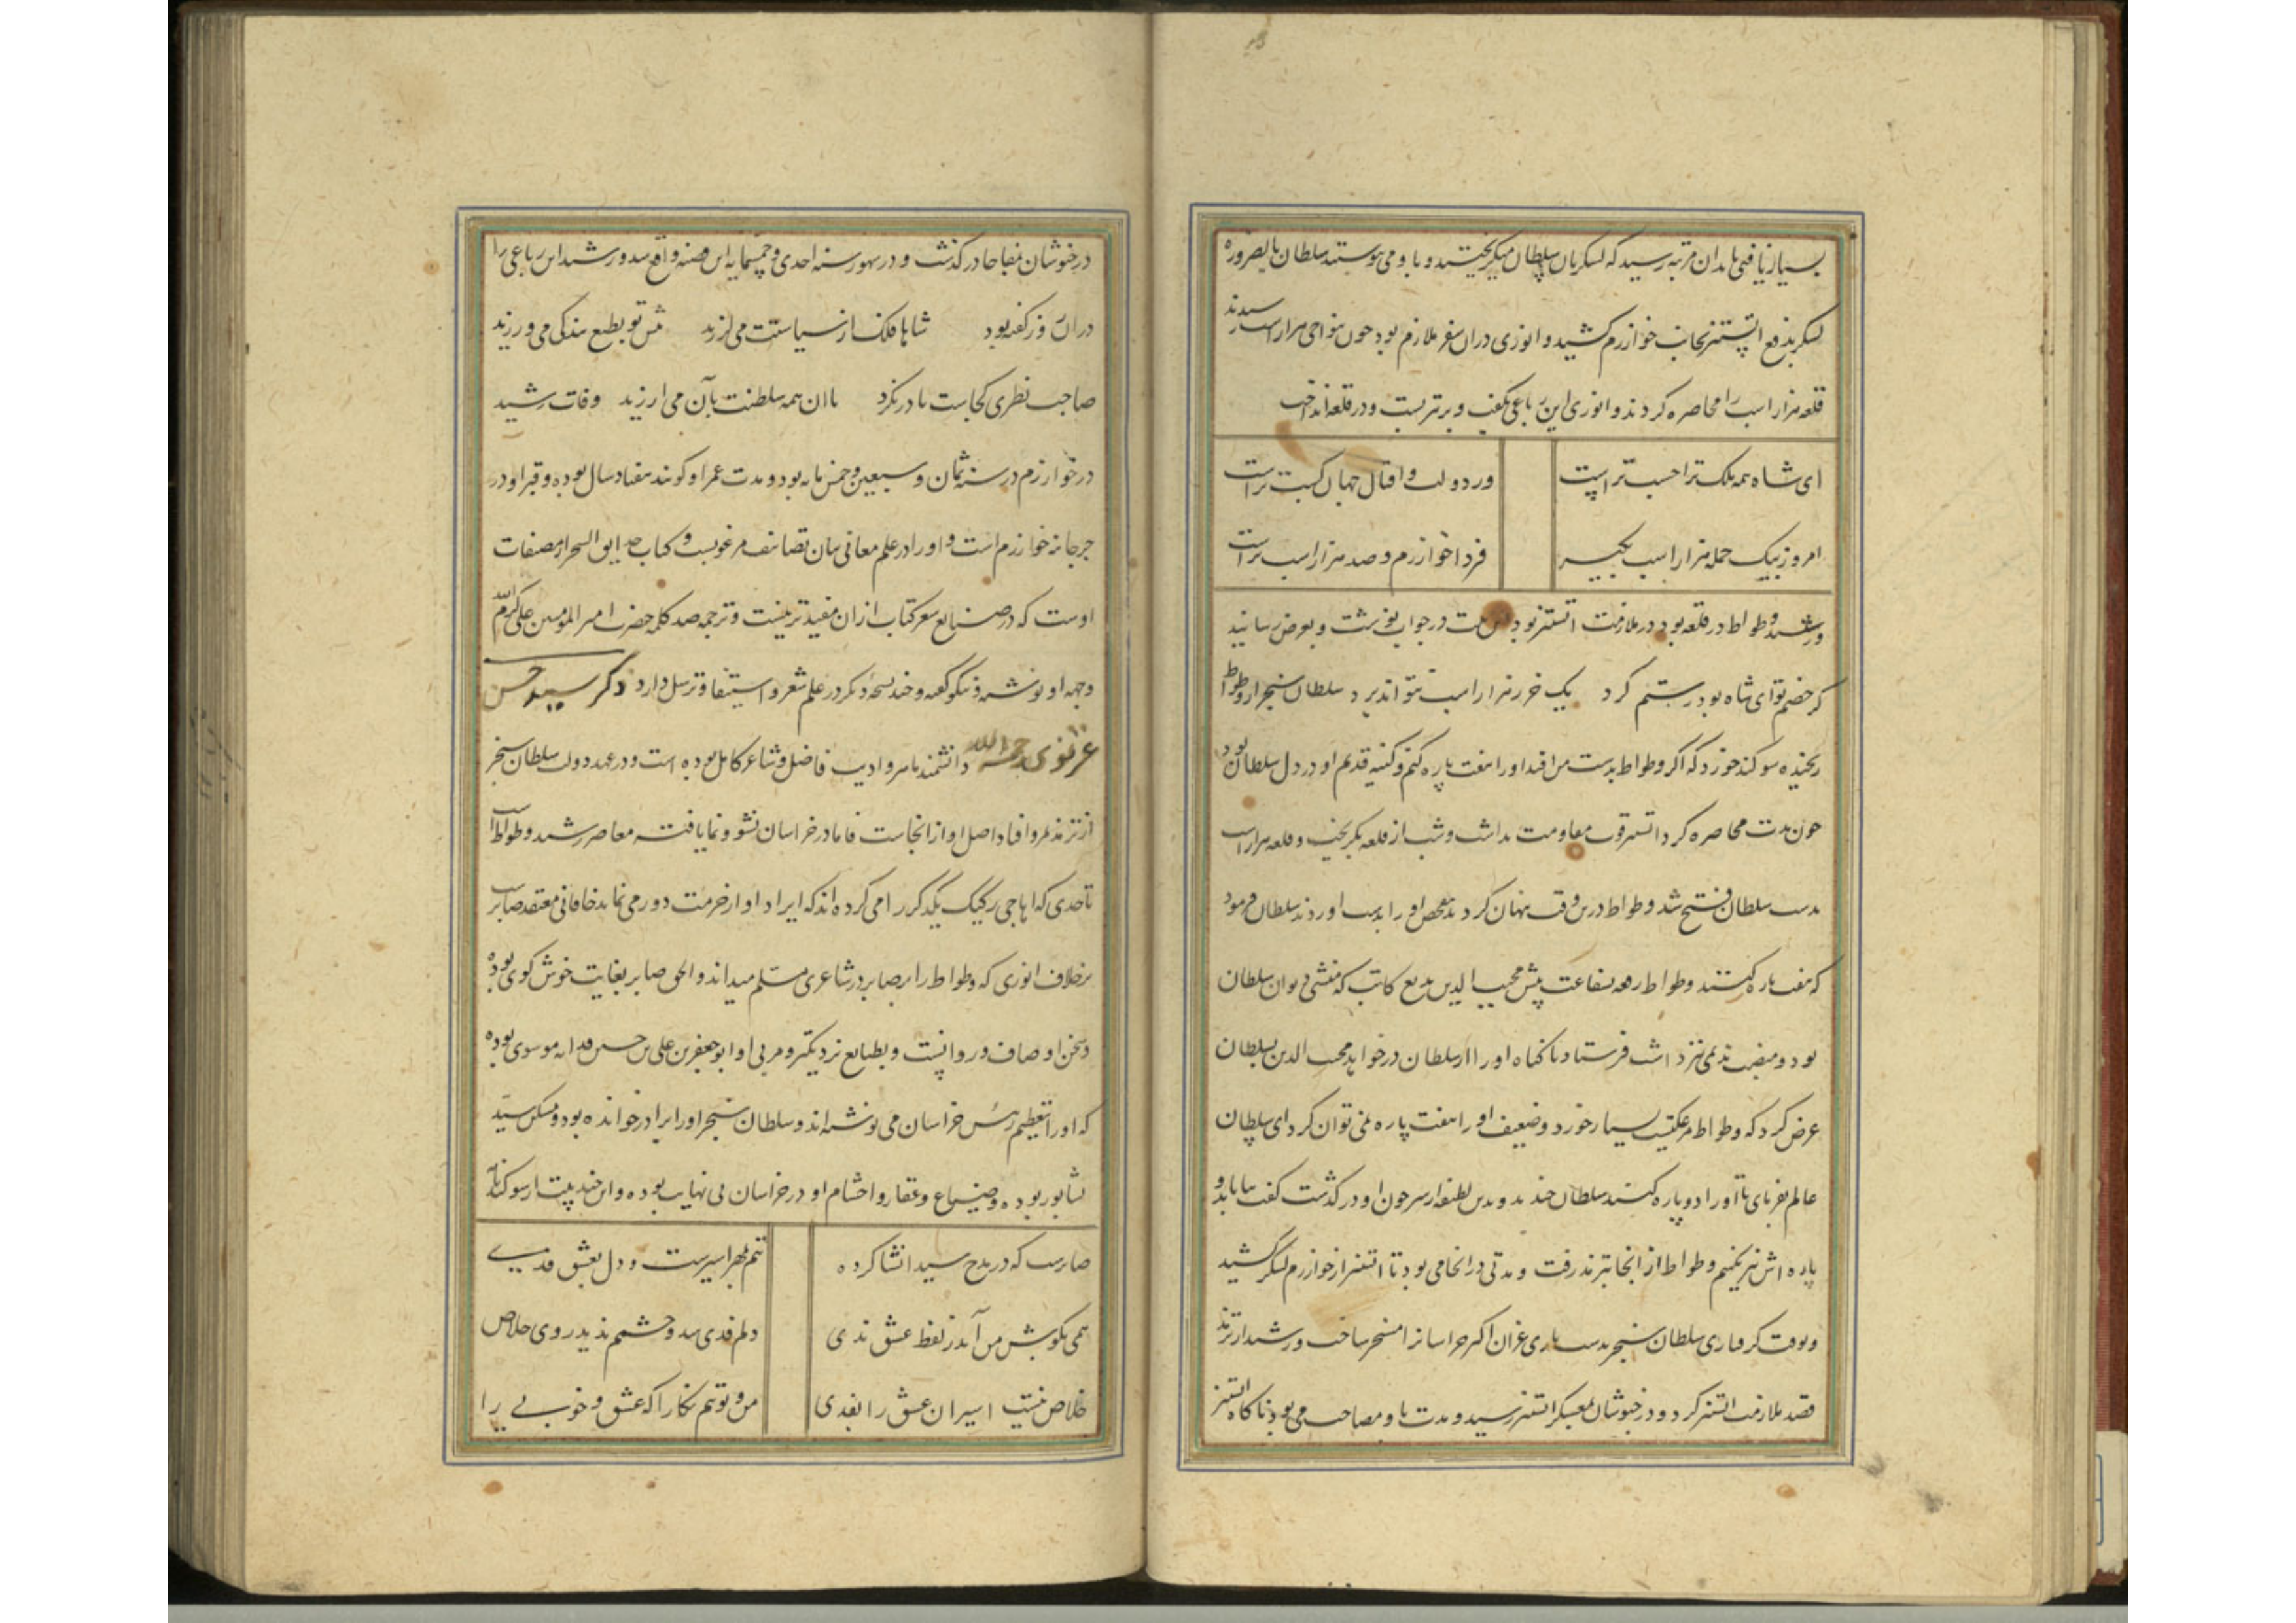 بسیار یافتی تا بدان مرتبه رسید که لشکریان سلطان میگریختند و باو می پیوستند سلطان بالضروره
لشکر بدفع اتسز بجانب خوارزم کشید و انوری در ان سفر ملازم بود چون بنواحی هزار اسب رسیدند
قلعه هزار اسب را محاصره کردند و انوری این رباعی بگفت و بر تیر بست و در قلعه انداخت
ای شاه همه ملک ترا حسب تراست
وز دولت و اقبال جهان کسب تراست
امروز بیک حمله هزار اسب بگیر
فردا خوارزم و صد هزار اسب تراست
و رشید وطواط در قلعه بود در ملازمت اتسز بود این بیت در جواب بنوشت و بعرض رسانید
گر خصم تو ای شاه بود رستم گرد یک خر ز هزار اسب نتواند برد سلطان سنجر از وطواط
رنجیده سوگند خورد که اگر وطواط بدست من افتد او را هفت پاره کنم و کینه قدیم او در دل سلطان بود
چون مدت محاصره کرد اتسز قوت مقاومت نداشت و شب از قلعه بگریخت و قلعه هزار اسب
بدست سلطان فتح شد و طواط درین وقت پنهان کرد بتفحص او را بدست اوردند سلطان فرمود
که هفت پاره کنند وطواط رقعه شفاعت پیش مجیب الدین بدیع کاتب که منشی دیوان سلطان
بود و منصب ندیمی نیز داشت فرستاد تا گناه او را از سلطان درخواهد مجیب الدین بسلطان
عرض کرد که وطواط مرغکیست بسیار خورد و ضعیف او را هفت پاره نمی توان کرد ای سلطان
عالم بفرمای تا او را دو پاره کنند سلطان خندید و بدین لطیفه از سر خون او درگذشت گفت بیا تا دو
پاره اش نیز نکنیم وطواط از انجا بترمذ رفت و مدتی در انجا می بود تا اتسز از خوارزم لشکر کشید
و بوقت گرفتاری سلطان سنجر بدست یاری غزان اکثر خراسان را مسخر ساخت و رشید از ترمذ
قصد ملازمت اتسز کرد و در خبوشان بمعسکر اتسز رسید و مدت باو مصاحب می بود ناگاه اتسز
در خبوشان مفاجا درگذشت و در شهور سنه احدی و خمسمایه این قضیه واقع شد و رشید این رباعی را
در ان روز گفته بود شاها فلک از سیاستت می لرزید پیش تو بطبع بندگی می ورزید
صاحب نظری کجاست تا درنگرد تا ان همه سلطنت بآن می ارزید وفات رشید
در خوارزم در سنه ثمان و سبعین و خمس مایه بود و مدت عمر او گویند هفتاد سال بوده و قبر او در
جرجانیه خوارزم است و او را در علم معانی بیان تصانیف مرغوبست و کتاب حدایق السحر از مصنفات
اوست که در صنایع شعر کتاب ازان مفیدتر نیست و ترجمه صد کلمه حضرت امیر المومنین علی کرم الله
وجهه او نوشته و نیکو گفته و چند نسخه دیگر در علم شعر و استیفا و ترسل دارد ذکر سید حسن
غزنوی رحمه الله دانشمند ماهر و ادیب فاضل و شاعر کامل بوده است و در عهد دولت سلطان سنجر
از ترمذ بمرو افتاد اصل او از انجاست فاما در خراسان نشو و نما یافته معاصر رشید وطواط است
تا حدی که اهاجی رکیک یکدیگر را می کرده اند که ایراد او از خرمت دور می نماید خاقانی معتقد صابر است
بر خلاف انوری که وطواط را بر صابر در شاعری مسلم میداند و الحق صابر بغایت خوش گوی بوده
و سخن او صاف و روانست و بطبایع نزدیکتر و مربی او ابو جعفر بن علی بن حسین قدامه موسوی بوده
که او را تعظیم رئیس خراسان می نوشته اند و سلطان سنجر او را برادر خوانده بود و مسکن سید
نشابور بوده و ضیاع و عقار و احشام او در خراسان بی نهایت بوده و این چند بیت از سوگند نامه
صابرست که در مدح سید انشا کرده
تنم بمهر اسیرست و دل بعشق فدی
همی بگوش من آید ز لفظ عشق ندی
دلم فدی شد و چشمم ندید روی خلاص
خلاص نیست اسیران عشق را بفدی
من و توئیم نگارا که عشق و خوبی را